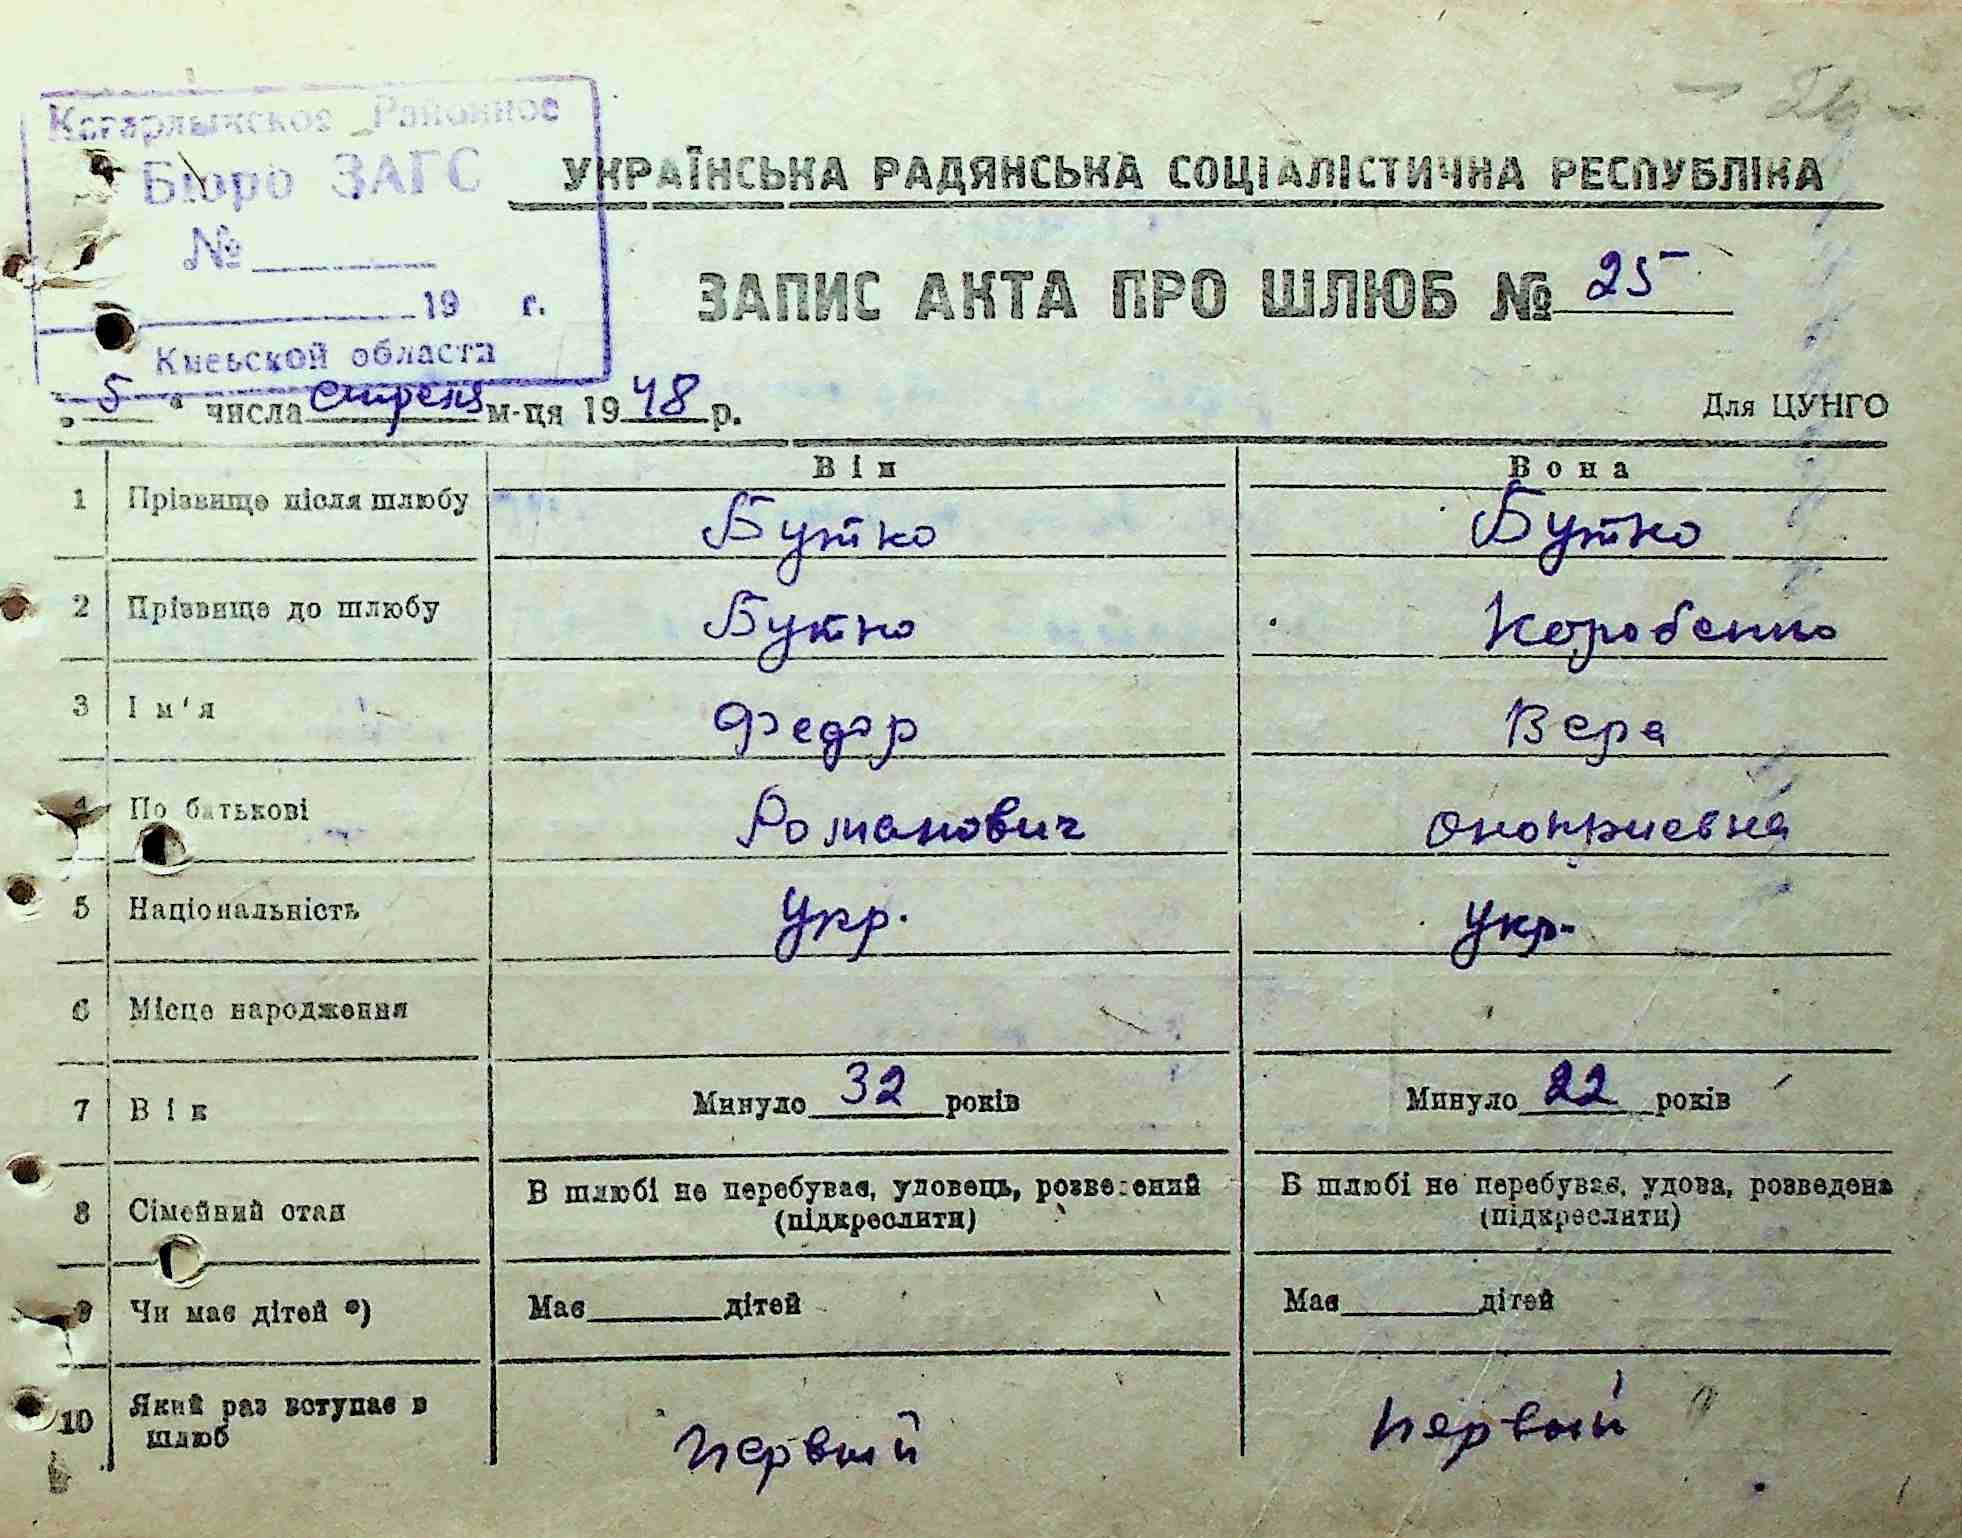 Кагарлыкское Районное
Бюро ЗАГС
№
19 г.
Киевской области
УКРАЇНСЬКА РАДЯНСЬКА СОЦІАЛІСТИЧНА РЕСПУБЛІКА
ЗАПИС АКТА ПРО ШЛЮБ № 25
„5“ числа м-ця 1948 р.
Для ЦУНГО
Він Вона
1 Прізвище після шлюбу Бутко Бутко
2 Прізвище до шлюбу Бутко Коробенко
3 Ім'я Федор Вера
4 По батькові Романович Оноприевна
5 Національність Укр. Укр.
6 Місце народження
7 Вік Минуло 32 років Минуло 22 років
8 Сімейний стан В шлюбі не перебуває, удовець, розведений (підкреслити) В шлюбі не перебуває, удова, розведена (підкреслити)
9 Чи має дітей *) Має дітей Має дітей
10 Який раз вступає в шлюб первый первый